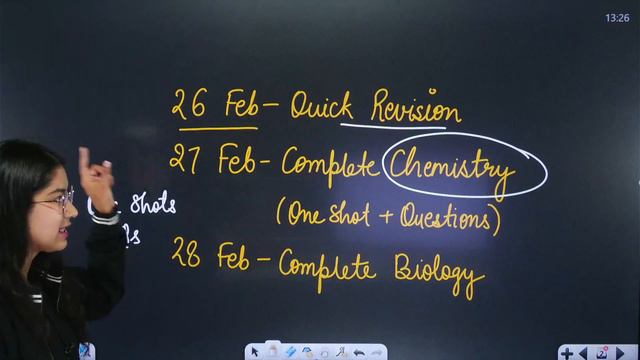 13:26
26 Feb - Quick Revision
27 Feb - Complete Chemistry
shots
(One Shot + Questions)
28 Feb - Complete Biology